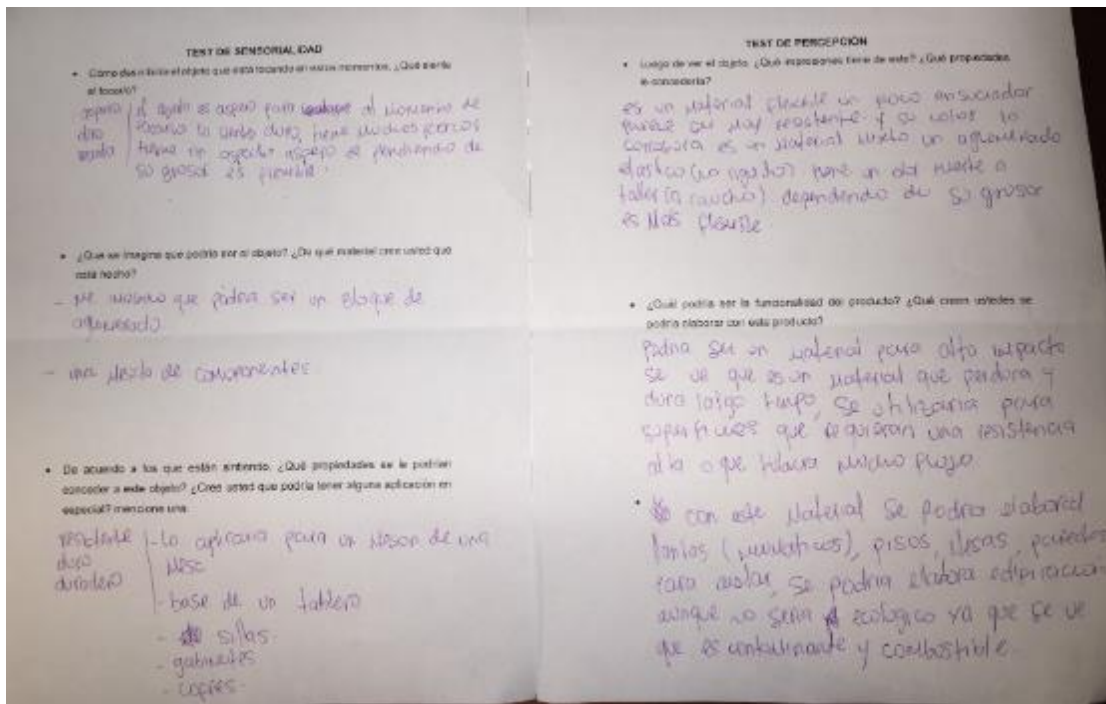 TEST DE SENSORIALIDAD
• Como describiría el objeto que está tocando en estos momentos, ¿Qué siente
al tocarlo?
aspero / el objeto es aspero para al momento de
duro tocarlo lo siento duro, tiene muchos
tiene un aspecto aspero dependiendo de
su grosor es flexible.
• ¿Que se imagina que podría ser el objeto? ¿De qué material cree usted que
está hecho?
- Me imagino que podria ser un bloque de
aglomerado
- una mezcla de componentes
• De acuerdo a los que están sintiendo. ¿Qué propiedades se le podrían
conceder a este objeto? ¿Cree usted que podría tener alguna aplicación en
especial? mencione una.
resistente - Lo aplicaria para un meson de una
duro mesa
duradero - base de un tablero
- sillas.
- gabinetes
- copres.
TEST DE PERCEPCIÓN
• Luego de ver el objeto, ¿Qué impresiones tiene de este? ¿Qué propiedades
le concedería?
es un material flexible un poco ensuciador
puede ser muy resistente y su color lo
corrobora es un material mixto un aglomerado
elastico (no rigido) tiene un olor fuerte a
taller (a caucho) dependiendo de su grosor
es Mas flexible.
• ¿Cuál podría ser la funcionalidad del producto? ¿Qué creen ustedes se
podría elaborar con este producto?
Podria ser un material para alto impacto
se ve que es un material que perdura y
dura largo tiempo, se utilizaria para
superficies que requieran una resistencia
alta o que hubiera mucho flujo.
• con este Material se podria elaborar
llantas (neumaticos), pisos, mesas, paredes
para aislar, se podria elaborar
aunque no seria ecologico ya que se ve
que es contaminante y combustible.